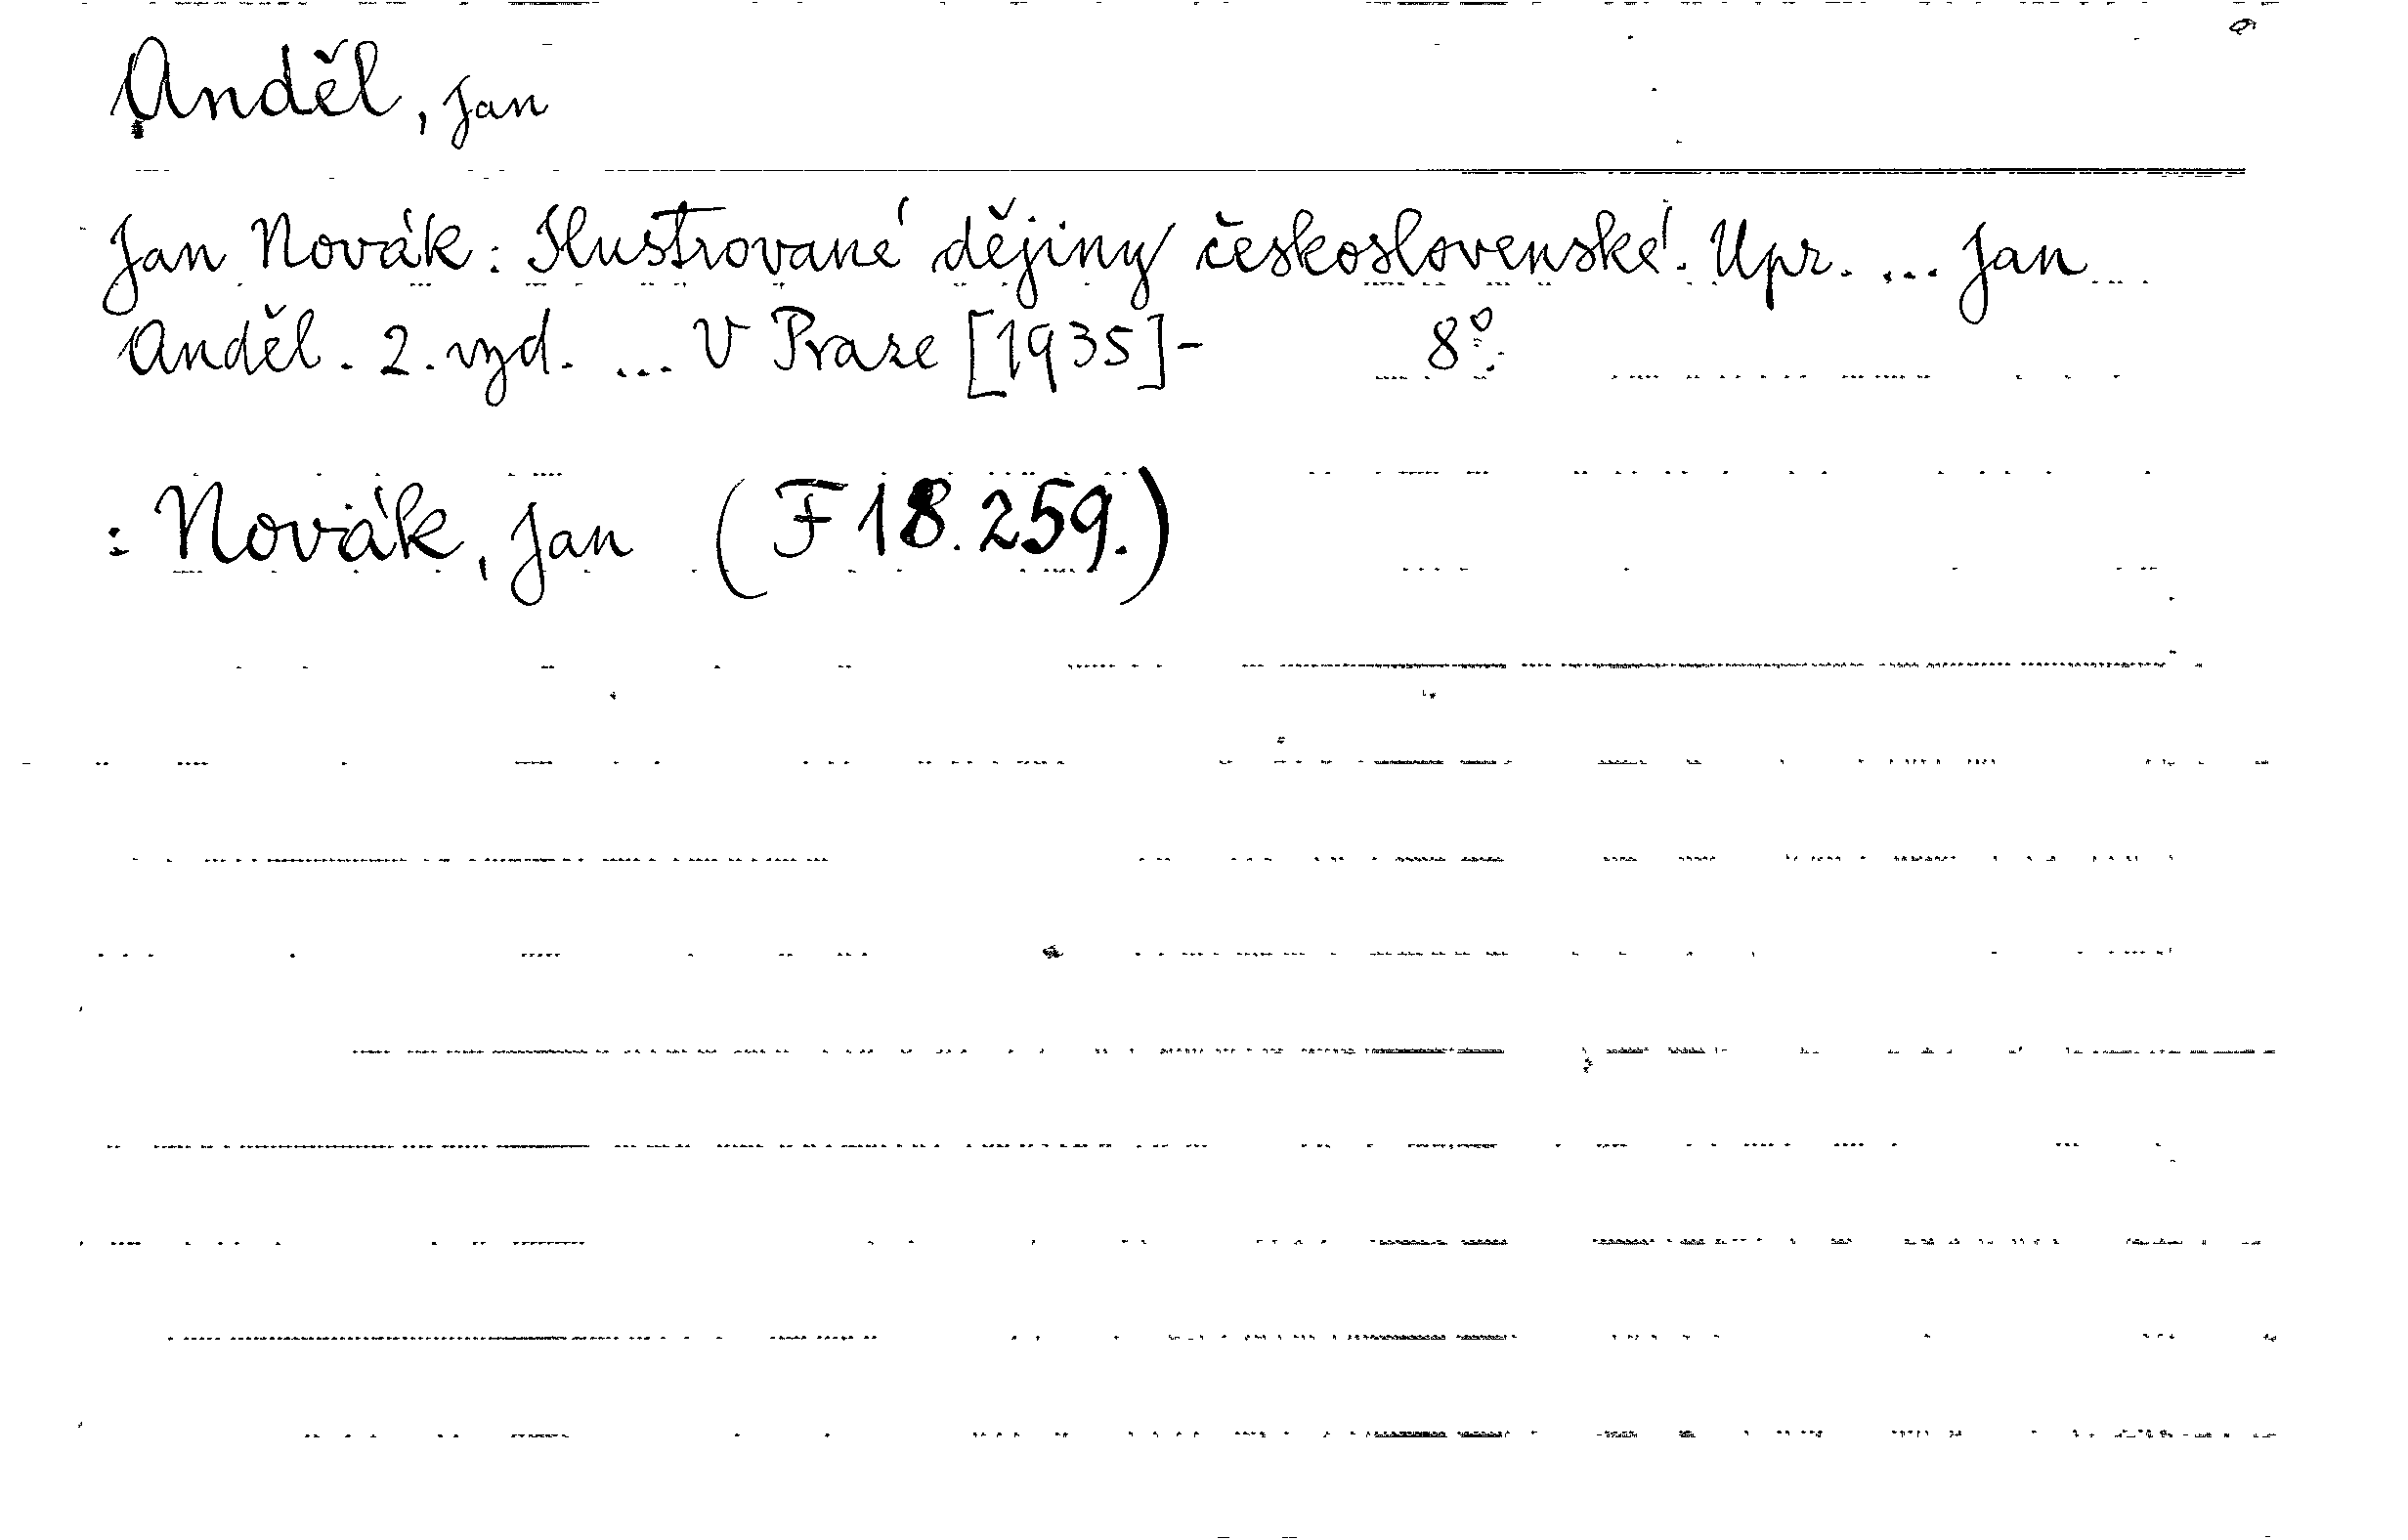 Anděl, Jan
Jan Novák: Ilustrované dějiny československé. Upr. ... Jan
Anděl. 2. vyd. ... V Praze [1935]- 8°.
: Novák, Jan (F 18.259.)